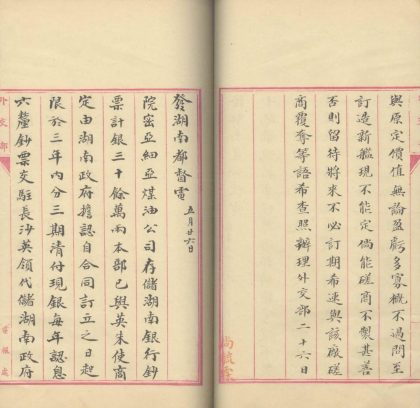 與原定價值無論盈虧多寡概不過問至
訂造新艦現不能定倘能磋商不製甚善
否則留待將來不必訂期希速與該廠磋
商覆奪等語希查照辦理外交部二十六日
發湖南都督電
五月廿六日
院密亞細亞煤油公司存儲湖南銀行鈔
票計銀三十餘萬兩本部已與英朱使商
定由湖南政府擔認自合同訂立之日起
限於三年內分三期清付現銀每年認息
六釐鈔票交駐長沙英領代儲湖南政府
外交部